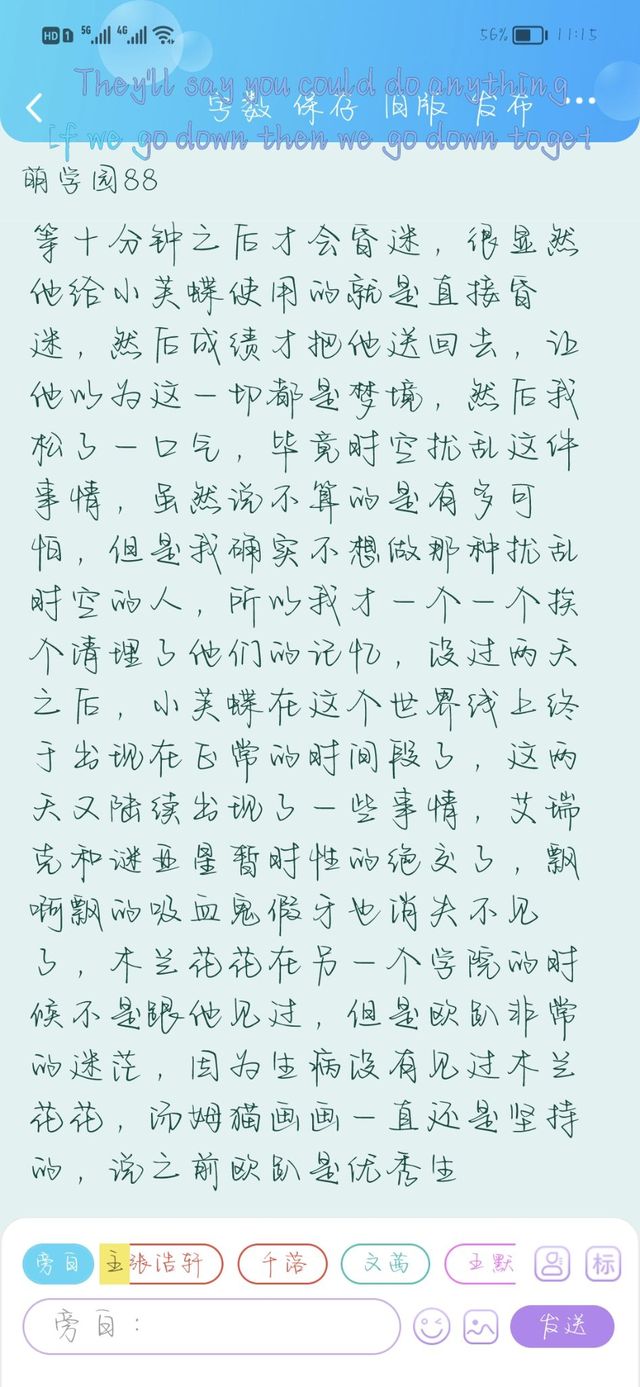 HD 1 5G 4G 56% 11:15
They'll say you could do anything
字数 保存 旧版 发布 ···
If we go down then we go down toget
萌学园88
等十分钟之后才会昏迷，很显然
他给小芙蝶使用的就是直接昏
迷，然后成绩才把他送回去，让
他以为这一切都是梦境，然后我
松了一口气，毕竟时空扰乱这件
事情，虽然说不算的是有多可
怕，但是我确实不想做那种扰乱
时空的人，所以我才一个一个挨
个清理了他们的记忆，没过两天
之后，小芙蝶在这个世界线上终
于出现在正常的时间段了，这两
天又陆续出现了一些事情，艾瑞
克和谜亚星暂时性的绝交了，飘
啊飘的吸血鬼假牙也消失不见
了，木兰花花在另一个学院的时
候不是跟他见过，但是欧趴非常
的迷茫，因为生病没有见过木兰
花花，汤姆猫画画一直还是坚持
的，说之前欧趴是优秀生
旁白 主 张浩轩 千落 文茜 王默 标
旁白： 发送